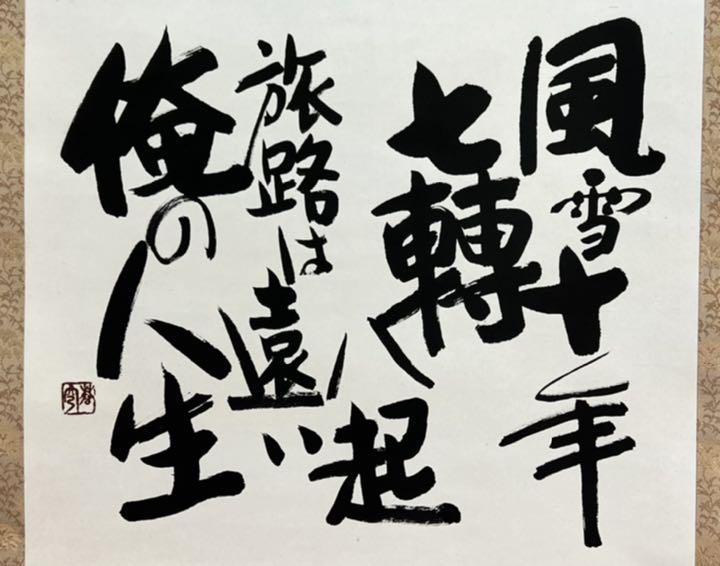 風雪十年
七轉八起
旅路は遠い
俺の人生